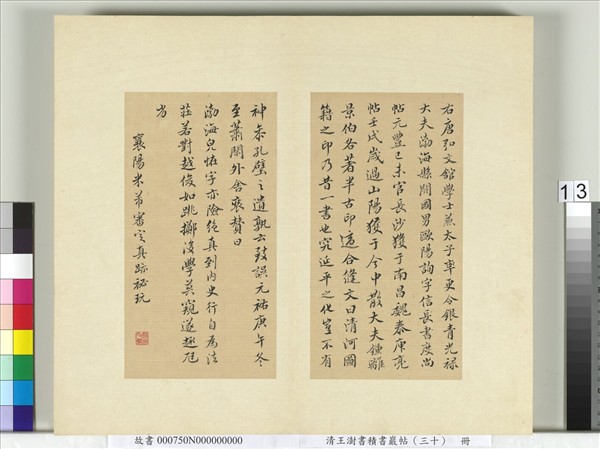 右唐弘文館學士兼太子率更令銀青光祿
大夫渤海縣開國男歐陽詢字信本書度尚
帖元豐己未官長沙獲于南昌魏泰庾亮
帖壬戌歲過山陽獲于今中散大夫鍾離
景伯各著半古印適合縫文曰清河圖
籍之印乃昔一書也究延平之化豈不有
神參孔壁之遺孰云致誤元祐庚午冬
至蕭閒外舍裒贊曰
渤海光恠字亦險絕真到內史行自為法
莊若對越俊如跳擲後學莫窺遂趣尫
劣
襄陽米芾審定真跡祕玩
13
故書 000750N000000000
清王澍書積書巖帖(三十) 冊